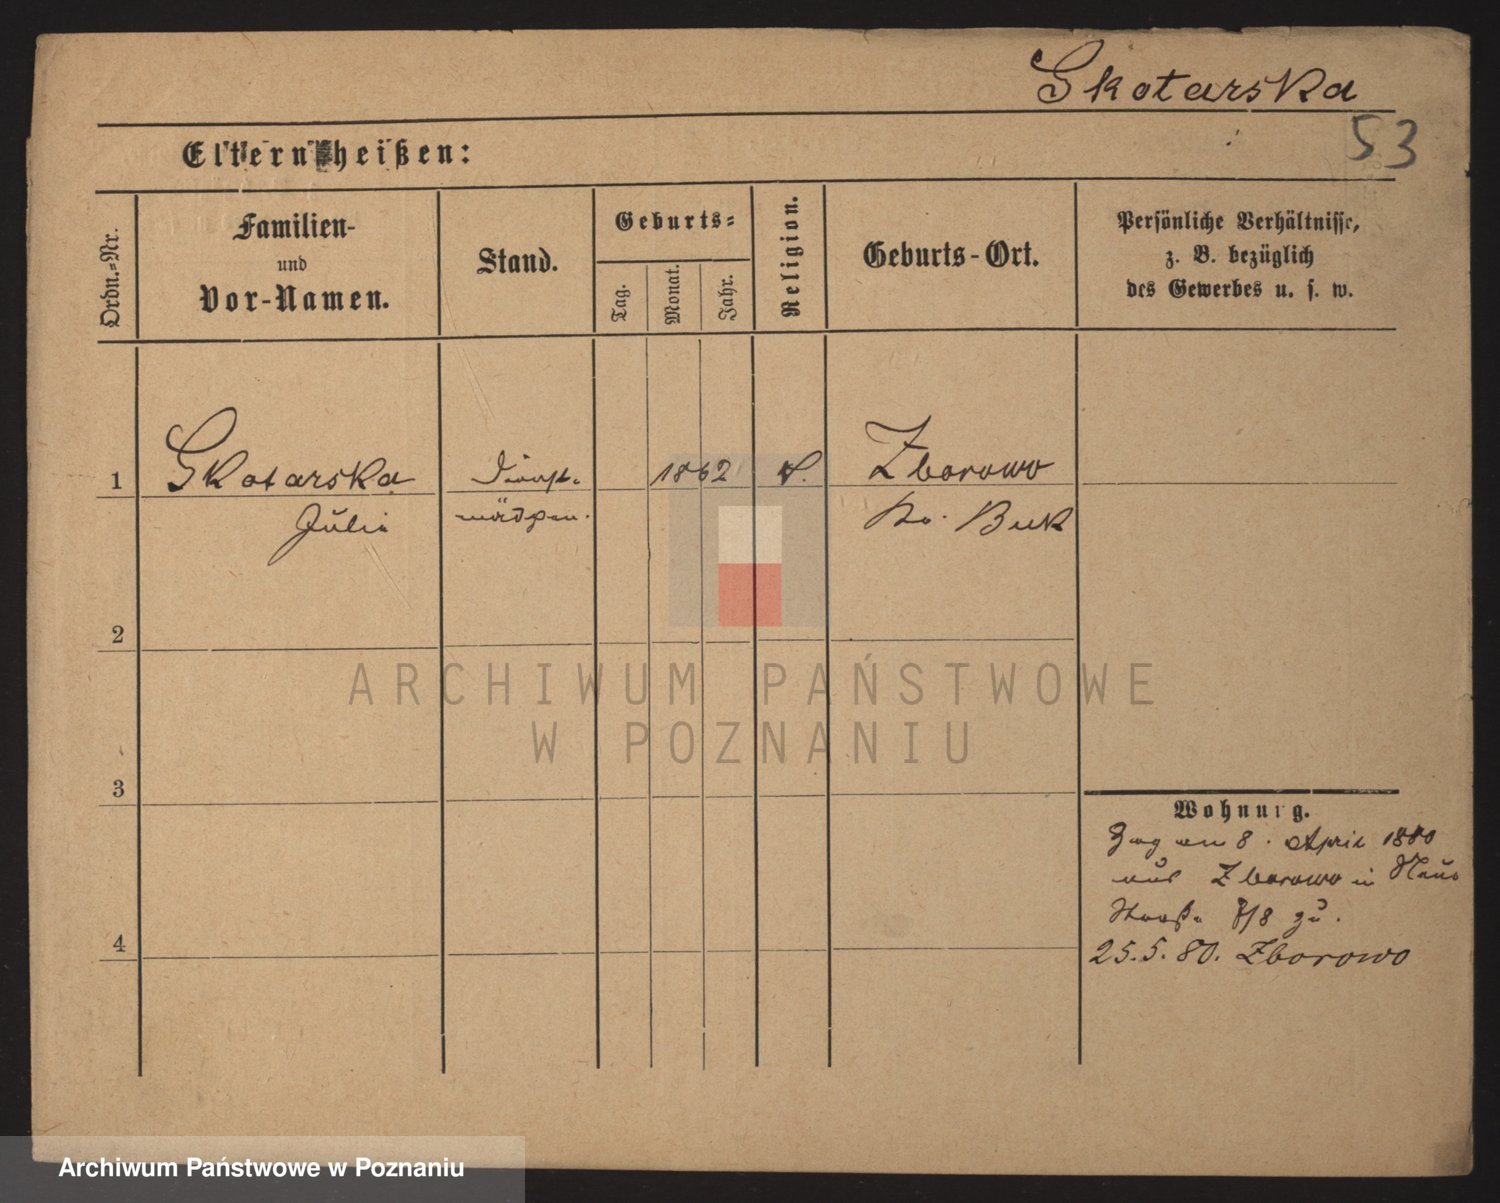 Skotarska
53
Eltern heißen:
Ordn.-Nr.
Familien-
und
Vor-Namen.
Stand.
Geburts-
Tag.
Monat.
Jahr.
Religion.
Geburts-Ort.
Persönliche Verhältnisse,
z. B. bezüglich
des Gewerbes u. s. w.
1
Skotarska
Julie
Dienst-
mädchen.
1862
Zborowo
Kr. Buk
2
3
4
Wohnung.
Zog am 8. April 1880
aus Zborowo in Neue
Straße 7/8 zu.
25.5.80. Zborowo
ARCHIWUM PAŃSTWOWE
W POZNANIU
Archiwum Państwowe w Poznaniu